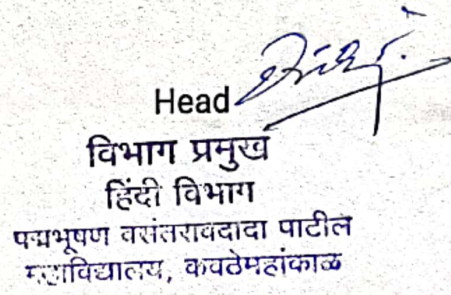 Head
विभाग प्रमुख
हिंदी विभाग
पद्मभूषण वसंतरावदादा पाटील
महाविद्यालय, कवठेमहांकाळ